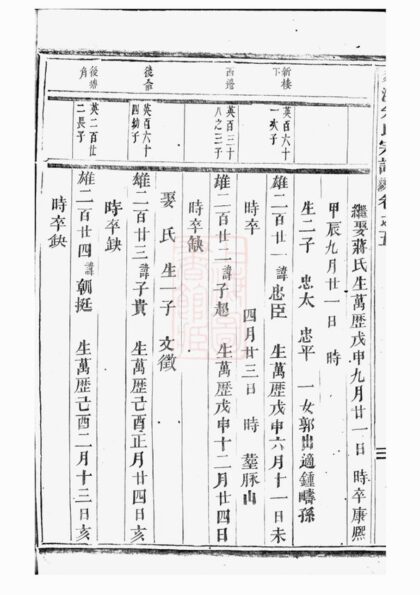 氏宗譜 卷之五
三
繼娶蔣氏生萬歷戊申九月廿一日 時卒康熙
甲辰九月廿一日 時
生二子 忠太 忠平 一女郭出適鍾疇孫
新樓下
英百六十一次子
雄二百廿一 諱忠臣 生萬歷戊申六月十一日未
時卒 四月廿三日 時 塟豚山
西邊
英百三十八之三子
雄二百廿二 諱子超 生萬歷戊申十二月廿四日
時卒缺
娶 氏 生一子 文徵
後
英百六十四幼子
雄二百廿三 諱子貴 生萬歷己酉正月廿四日亥
時卒缺
後塘角
英二百廿二長子
雄二百廿四 諱朝挺 生萬歷己酉二月十三日亥
時卒缺